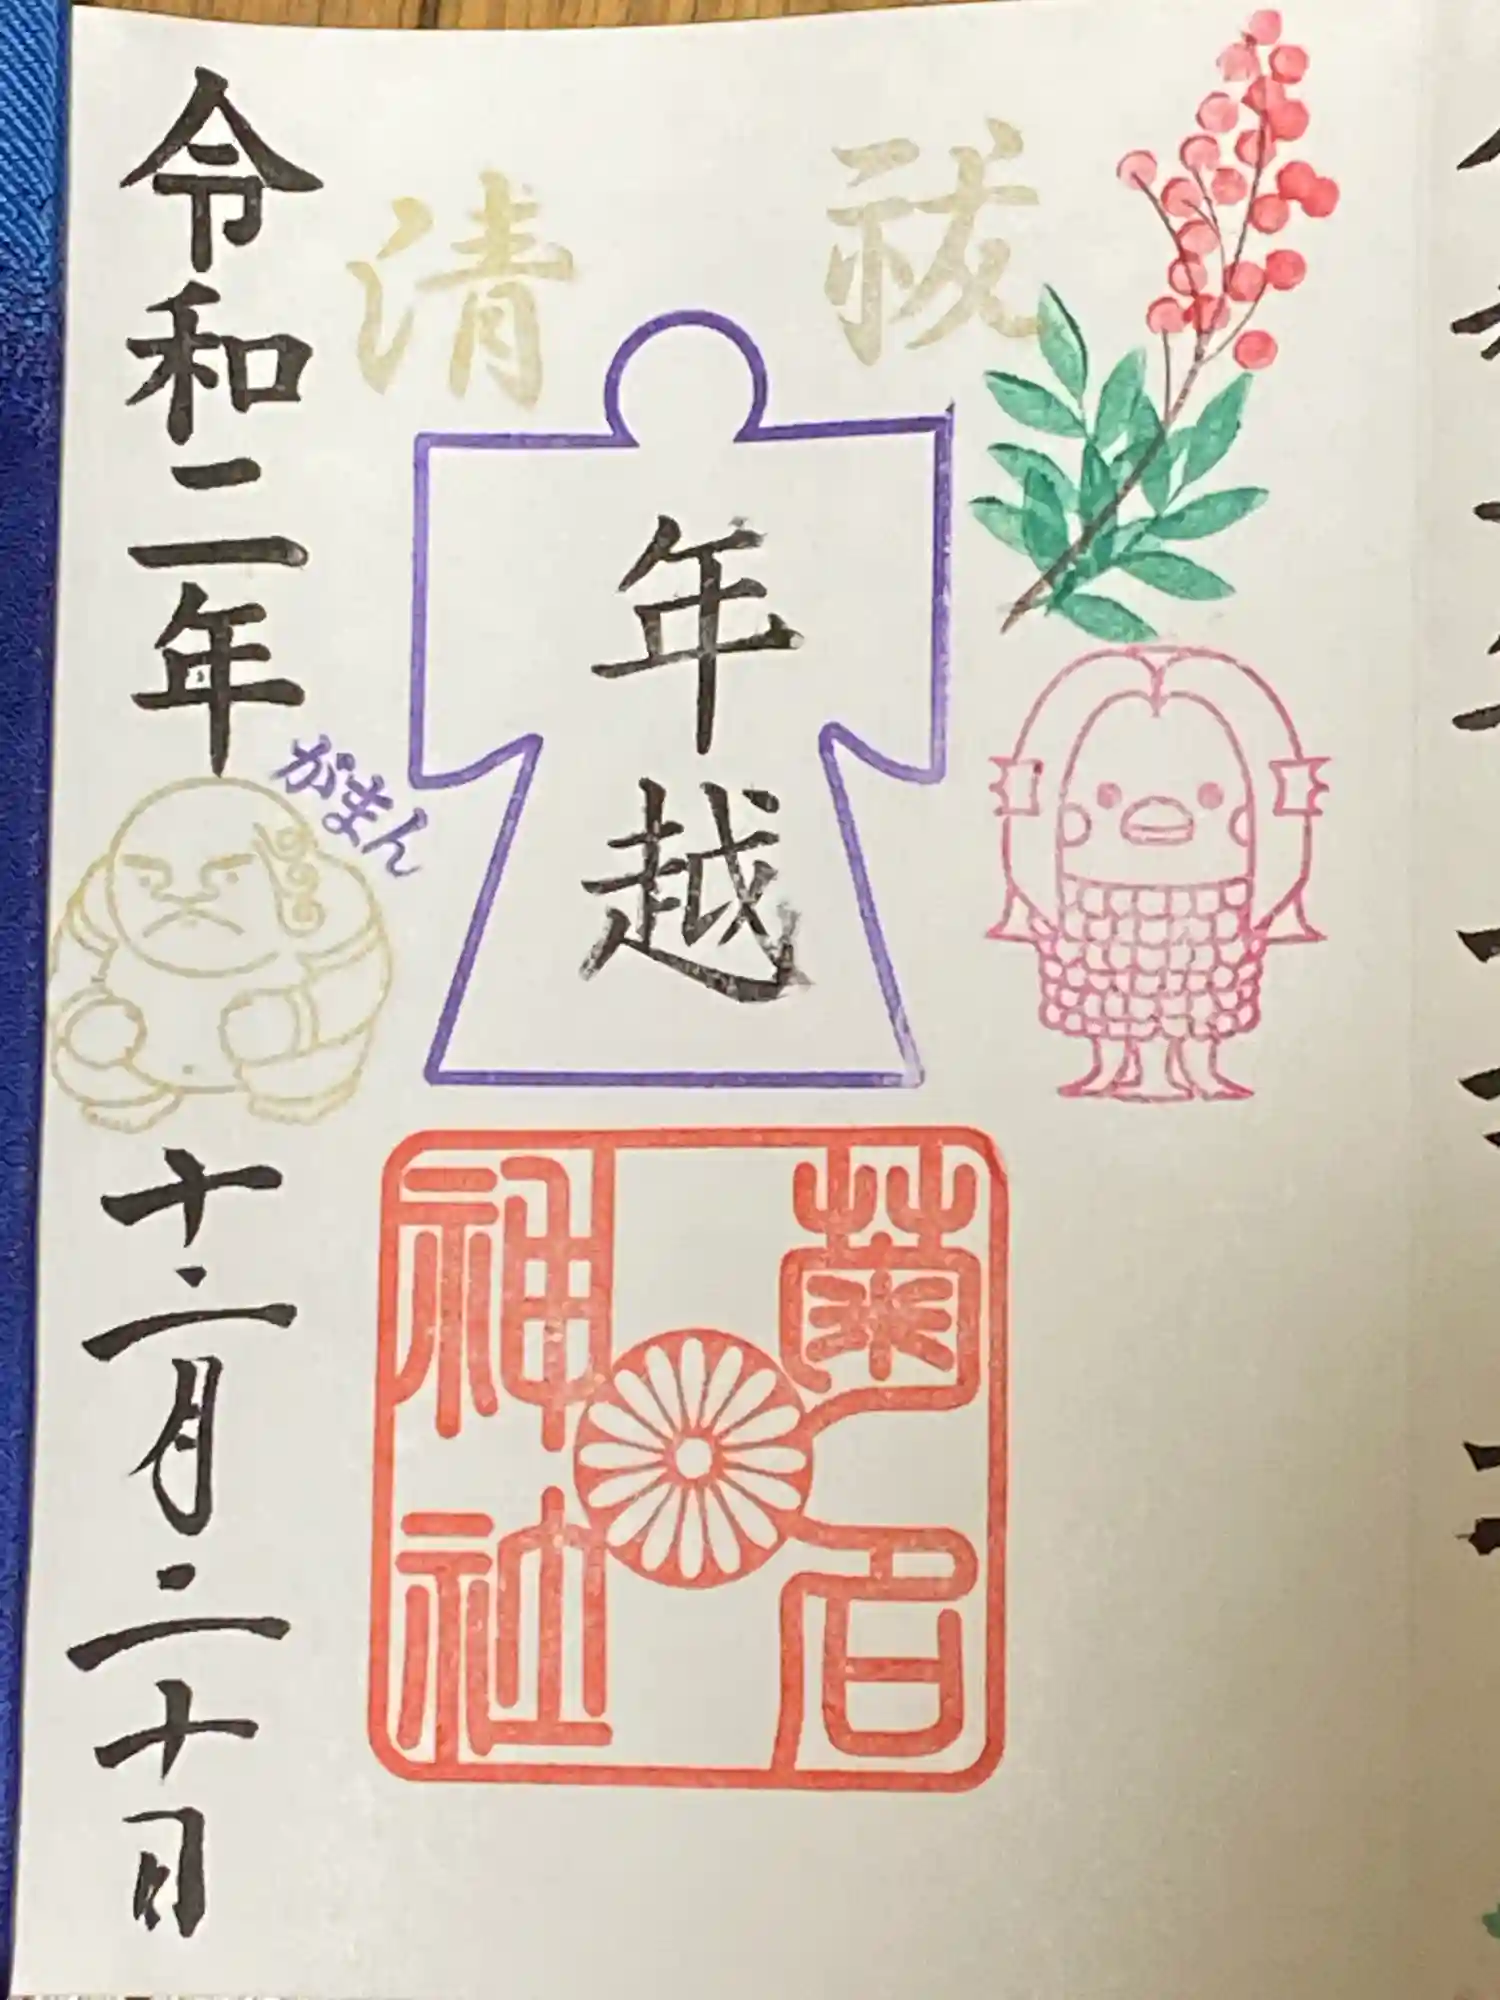 祓
清
年越
菊名
神社
がまん
令和二年
十二月二十日